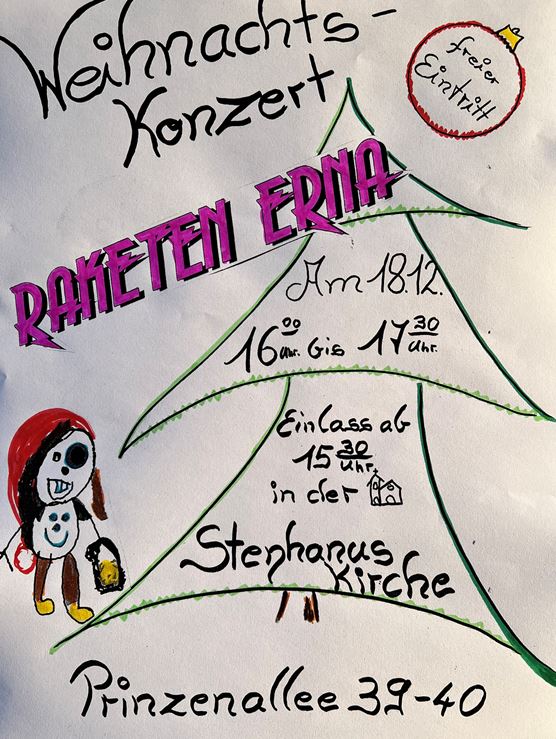 Weihnachts-
Konzert
freier
Eintritt
RAKETEN ERNA
Am 18.12.
16 00 Uhr. bis 17 30 Uhr.
Einlass ab
15 30 Uhr.
in der
Stephanus
Kirche
Prinzenallee 39-40